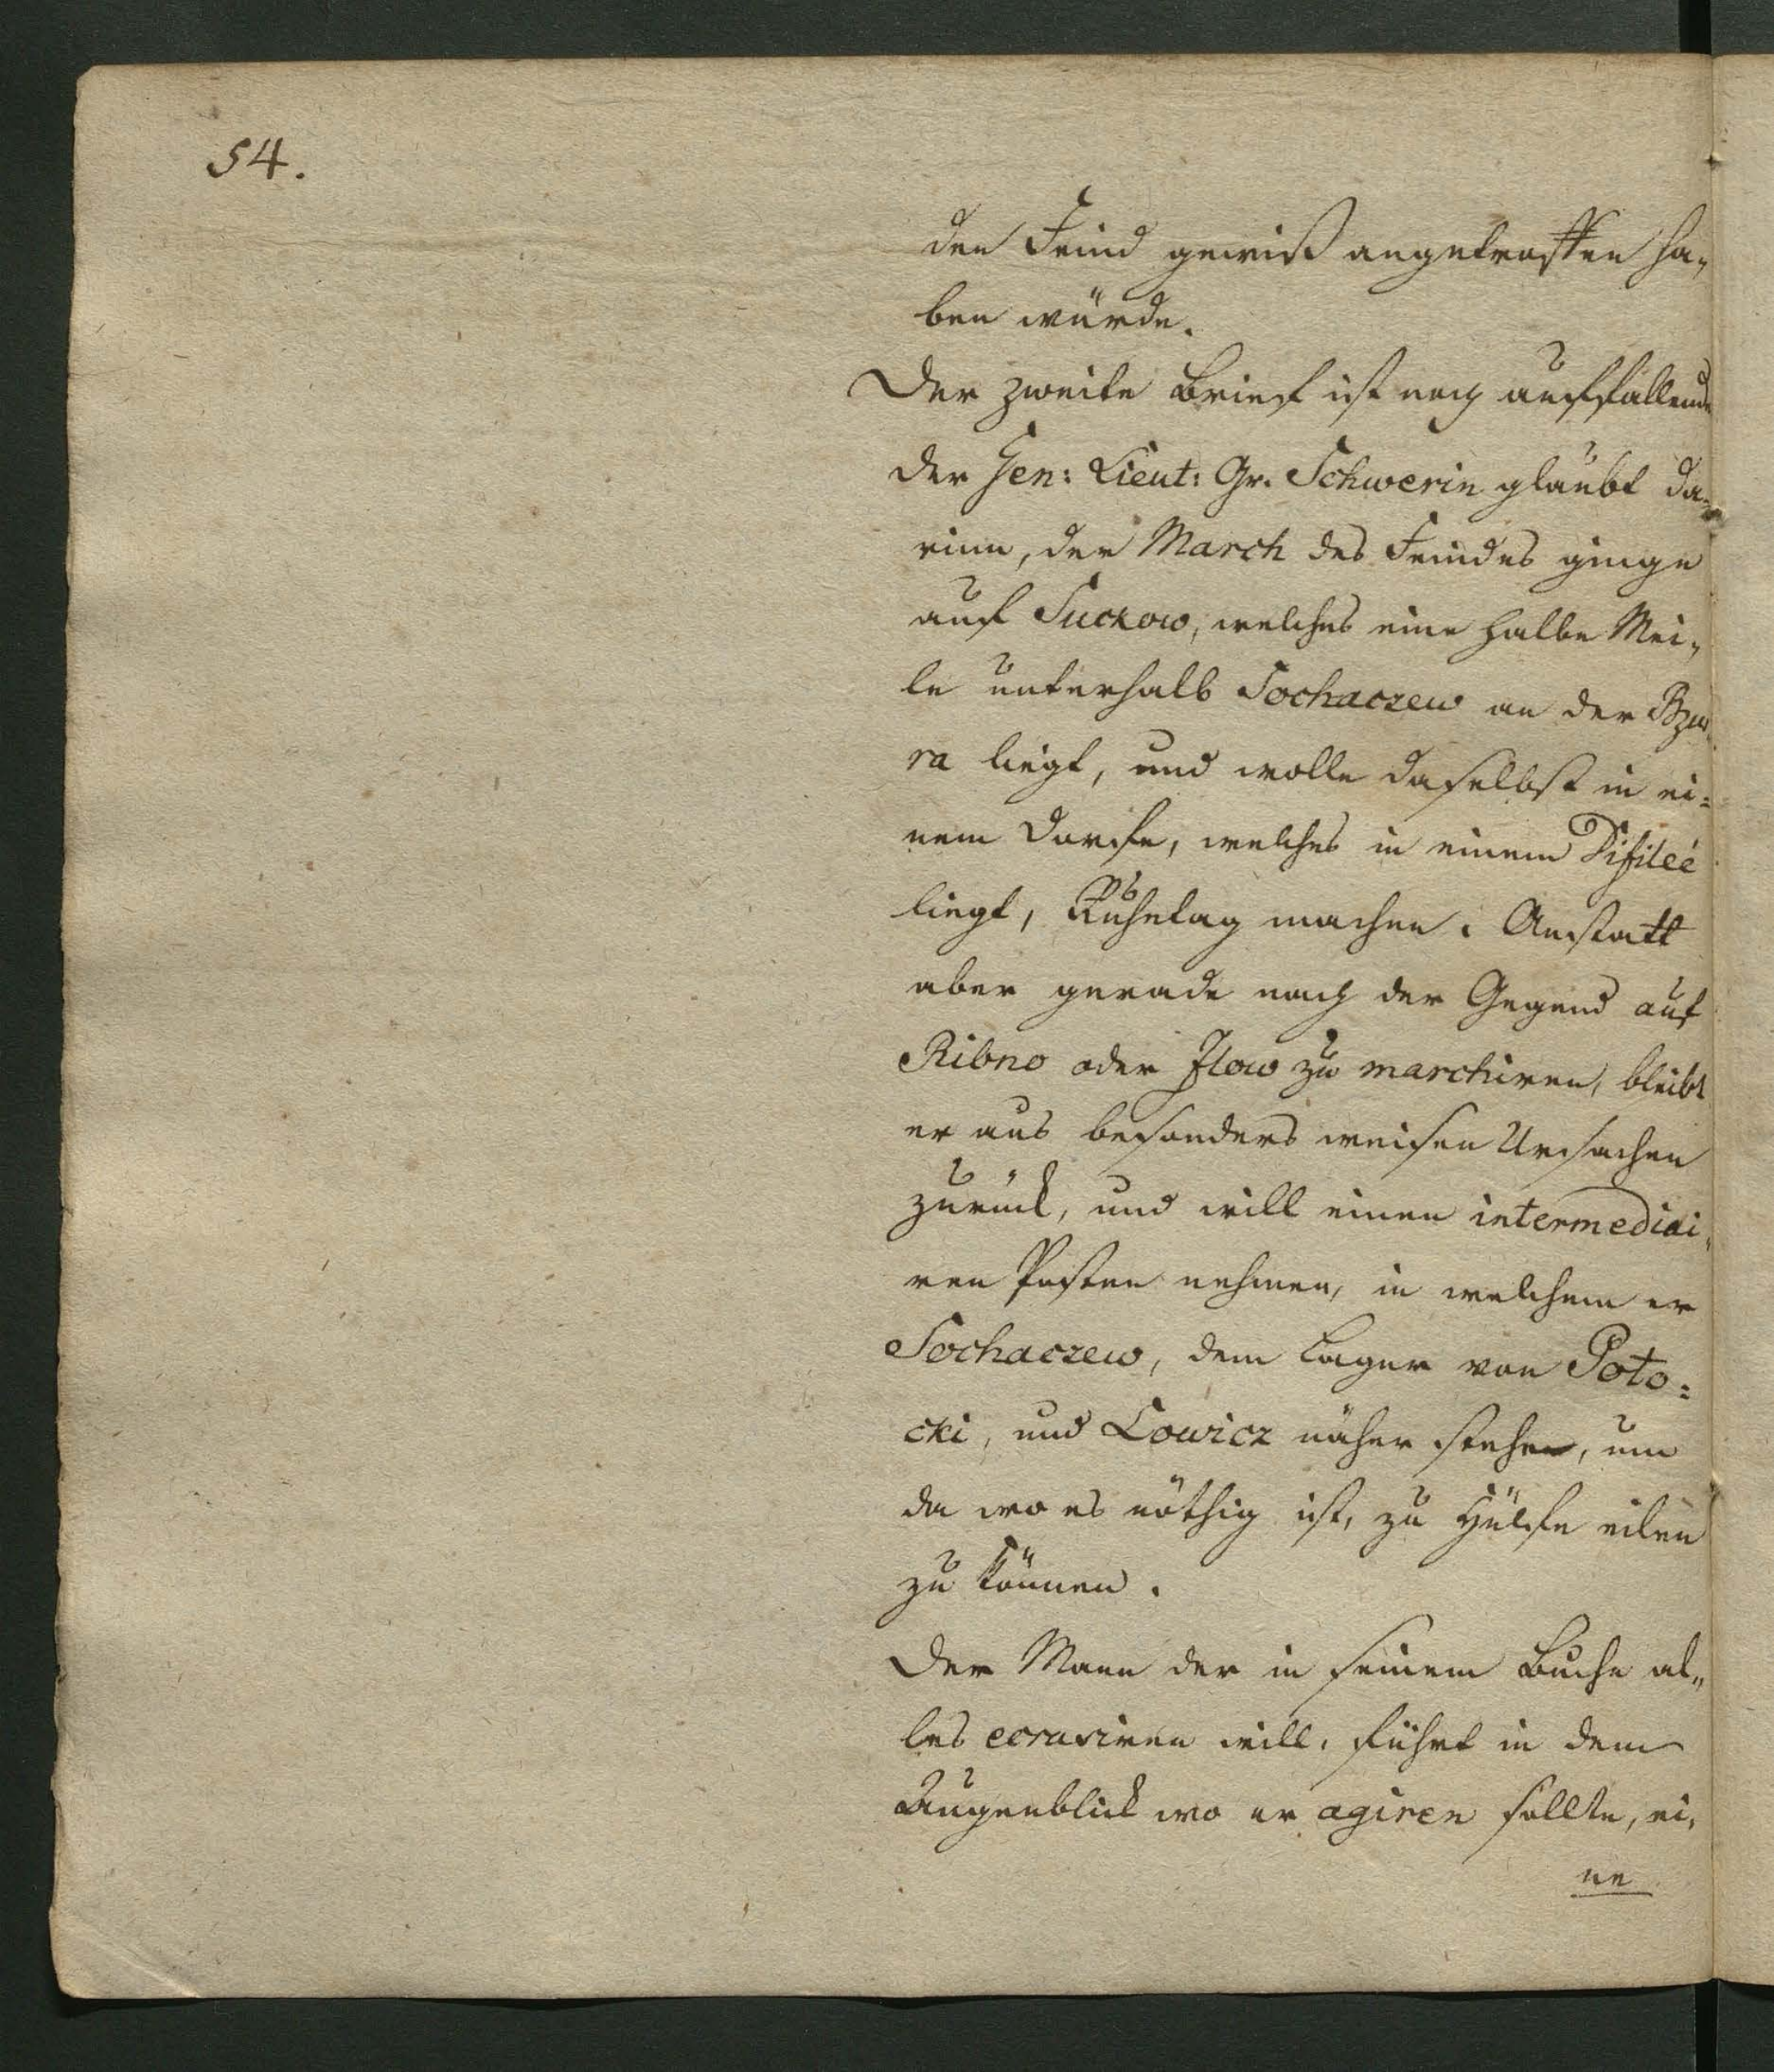 54.
den Feind gewiß angetroffen ha„
ben würde.
Der zweite Brief ist noch auffallender
der Gen: Lieut: Gr. Schwerin glaubt da„
rinn, der March des Feindes ginge
auf Suckow, welches eine halbe Mei„
le unterhalb Sochaczew an der Bzu„
ra liegt, und wolle daselbst in ei=
nem Dorfe, welches in einem Difileé
liegt, Ruhetag machen. Anstatt
aber gerade nach der Gegend auf
Ribno oder Jlow zu marchiren, bleibt
er aus besonders weisen Ursachen
zurück, und will einen intermediai„
ren Posten nehmen, in welchem er
Sochaczew, dem Lager von Poto=
cki, und Lowicz näher stehe, um
da wo es nöthig ist, zu Hülfe eilen
zu können.
Der Mann der in seinem Buche al„
les ecrasiren will, führt in dem
Augenblick wo er agiren sollte, ei„
ne